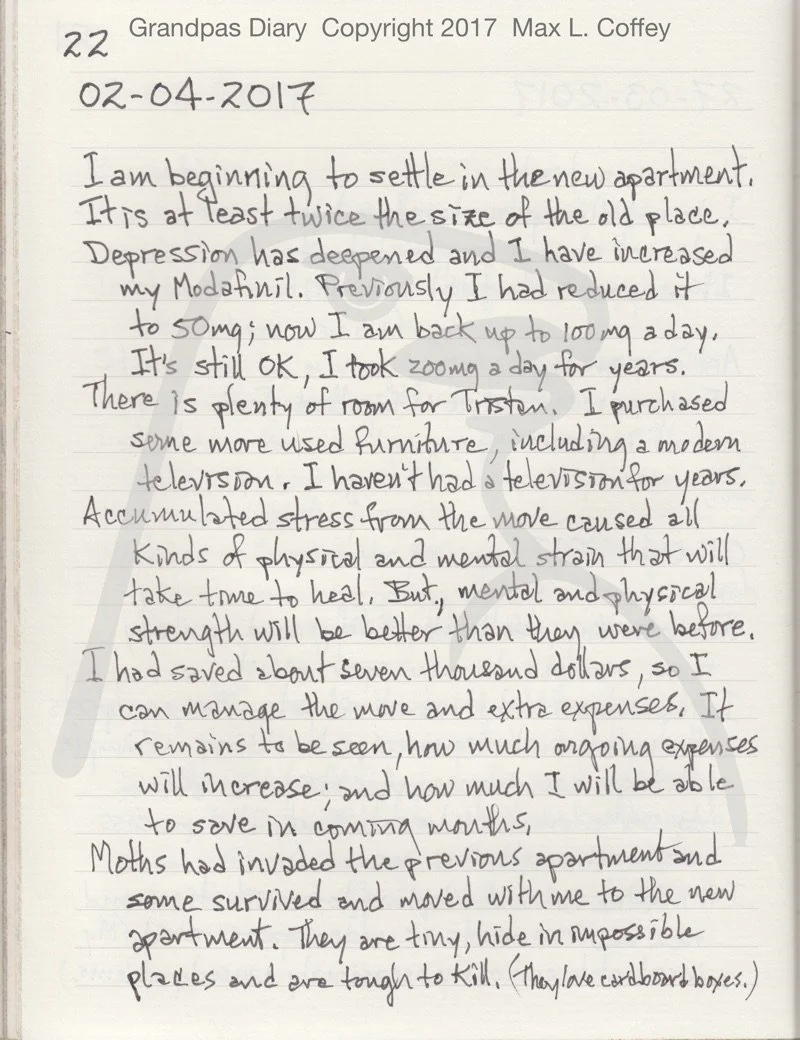 Grandpas Diary Copyright 2017 Max L. Coffey
22
02-04-2017
I am beginning to settle in the new apartment.
It is at least twice the size of the old place.
Depression has deepened and I have increased
my Modafinil. Previously I had reduced it
to 50mg; now I am back up to 100mg a day.
It's still OK, I took 200mg a day for years.
There is plenty of room for Tristan. I purchased
some more used furniture, including a modern
television. I haven't had a television for years.
Accumulated stress from the move caused all
kinds of physical and mental strain that will
take time to heal. But, mental and physical
strength will be better than they were before.
I had saved about seven thousand dollars, so I
can manage the move and extra expenses. It
remains to be seen, how much ongoing expenses
will increase; and how much I will be able
to save in coming months.
Moths had invaded the previous apartment and
some survived and moved with me to the new
apartment. They are tiny, hide in impossible
places and are tough to kill. (They love cardboard boxes.)